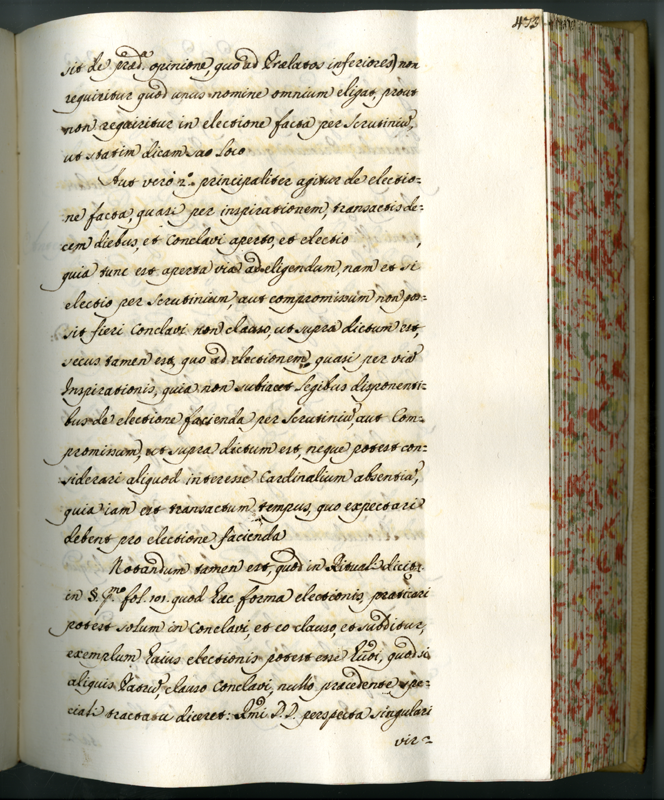 433
sit de præd. opinione, quo ad Prælatos inferiores) non
requiritur quod unus nomine omnium eligat, prout
non requiritur in electione facta per Scrutiniũ,
ut statim dicam suo Loco
Aut verò 2.º principaliter agitur de electio=
=ne facta, quasi per inspirationem, transactis de=
cem diebus, et Conclavi aperto, et electio ,
quia tunc est aperta via ad eligendum, nam et si
electio per Scrutinium, aut compromissum non pos=
sit fieri Conclavi non clauso, ut supra dictum est,
sicus tamen est, quo ad electionem, quasi per viã
Inspirationis, quia non subiacet legibus disponenti=
bus de electione facienda per Scrutiniũ, aut Com=
promissum, ut supra dictum est, neque potest con=
siderari aliquod interesse Cardinalium absentiũ,
quia iam est transactum tempus, quo expectari
debent pro electione facienda
Notandum tamen est, quod in Rituali dicitr.
in §. P.mo fol. 101. quod hæc forma electionis, praticari
potest solum in Conclavi, et eo clauso, et subditur,
exemplum huius electionis potest esse hũdi, quod si
aliquis Patrũ, clauso Conclavi, nullo præcedente spe=
ciali tractatu diceret: Rmi P.P. perspecta singulari
vir=